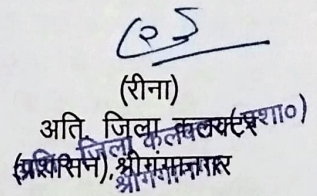 (रीना)
अति. जिला कलक्टर
(प्रशासन), श्रीगंगानगर
अति. जिला कलक्टर (प्रशा०)
श्रीगंगानगर